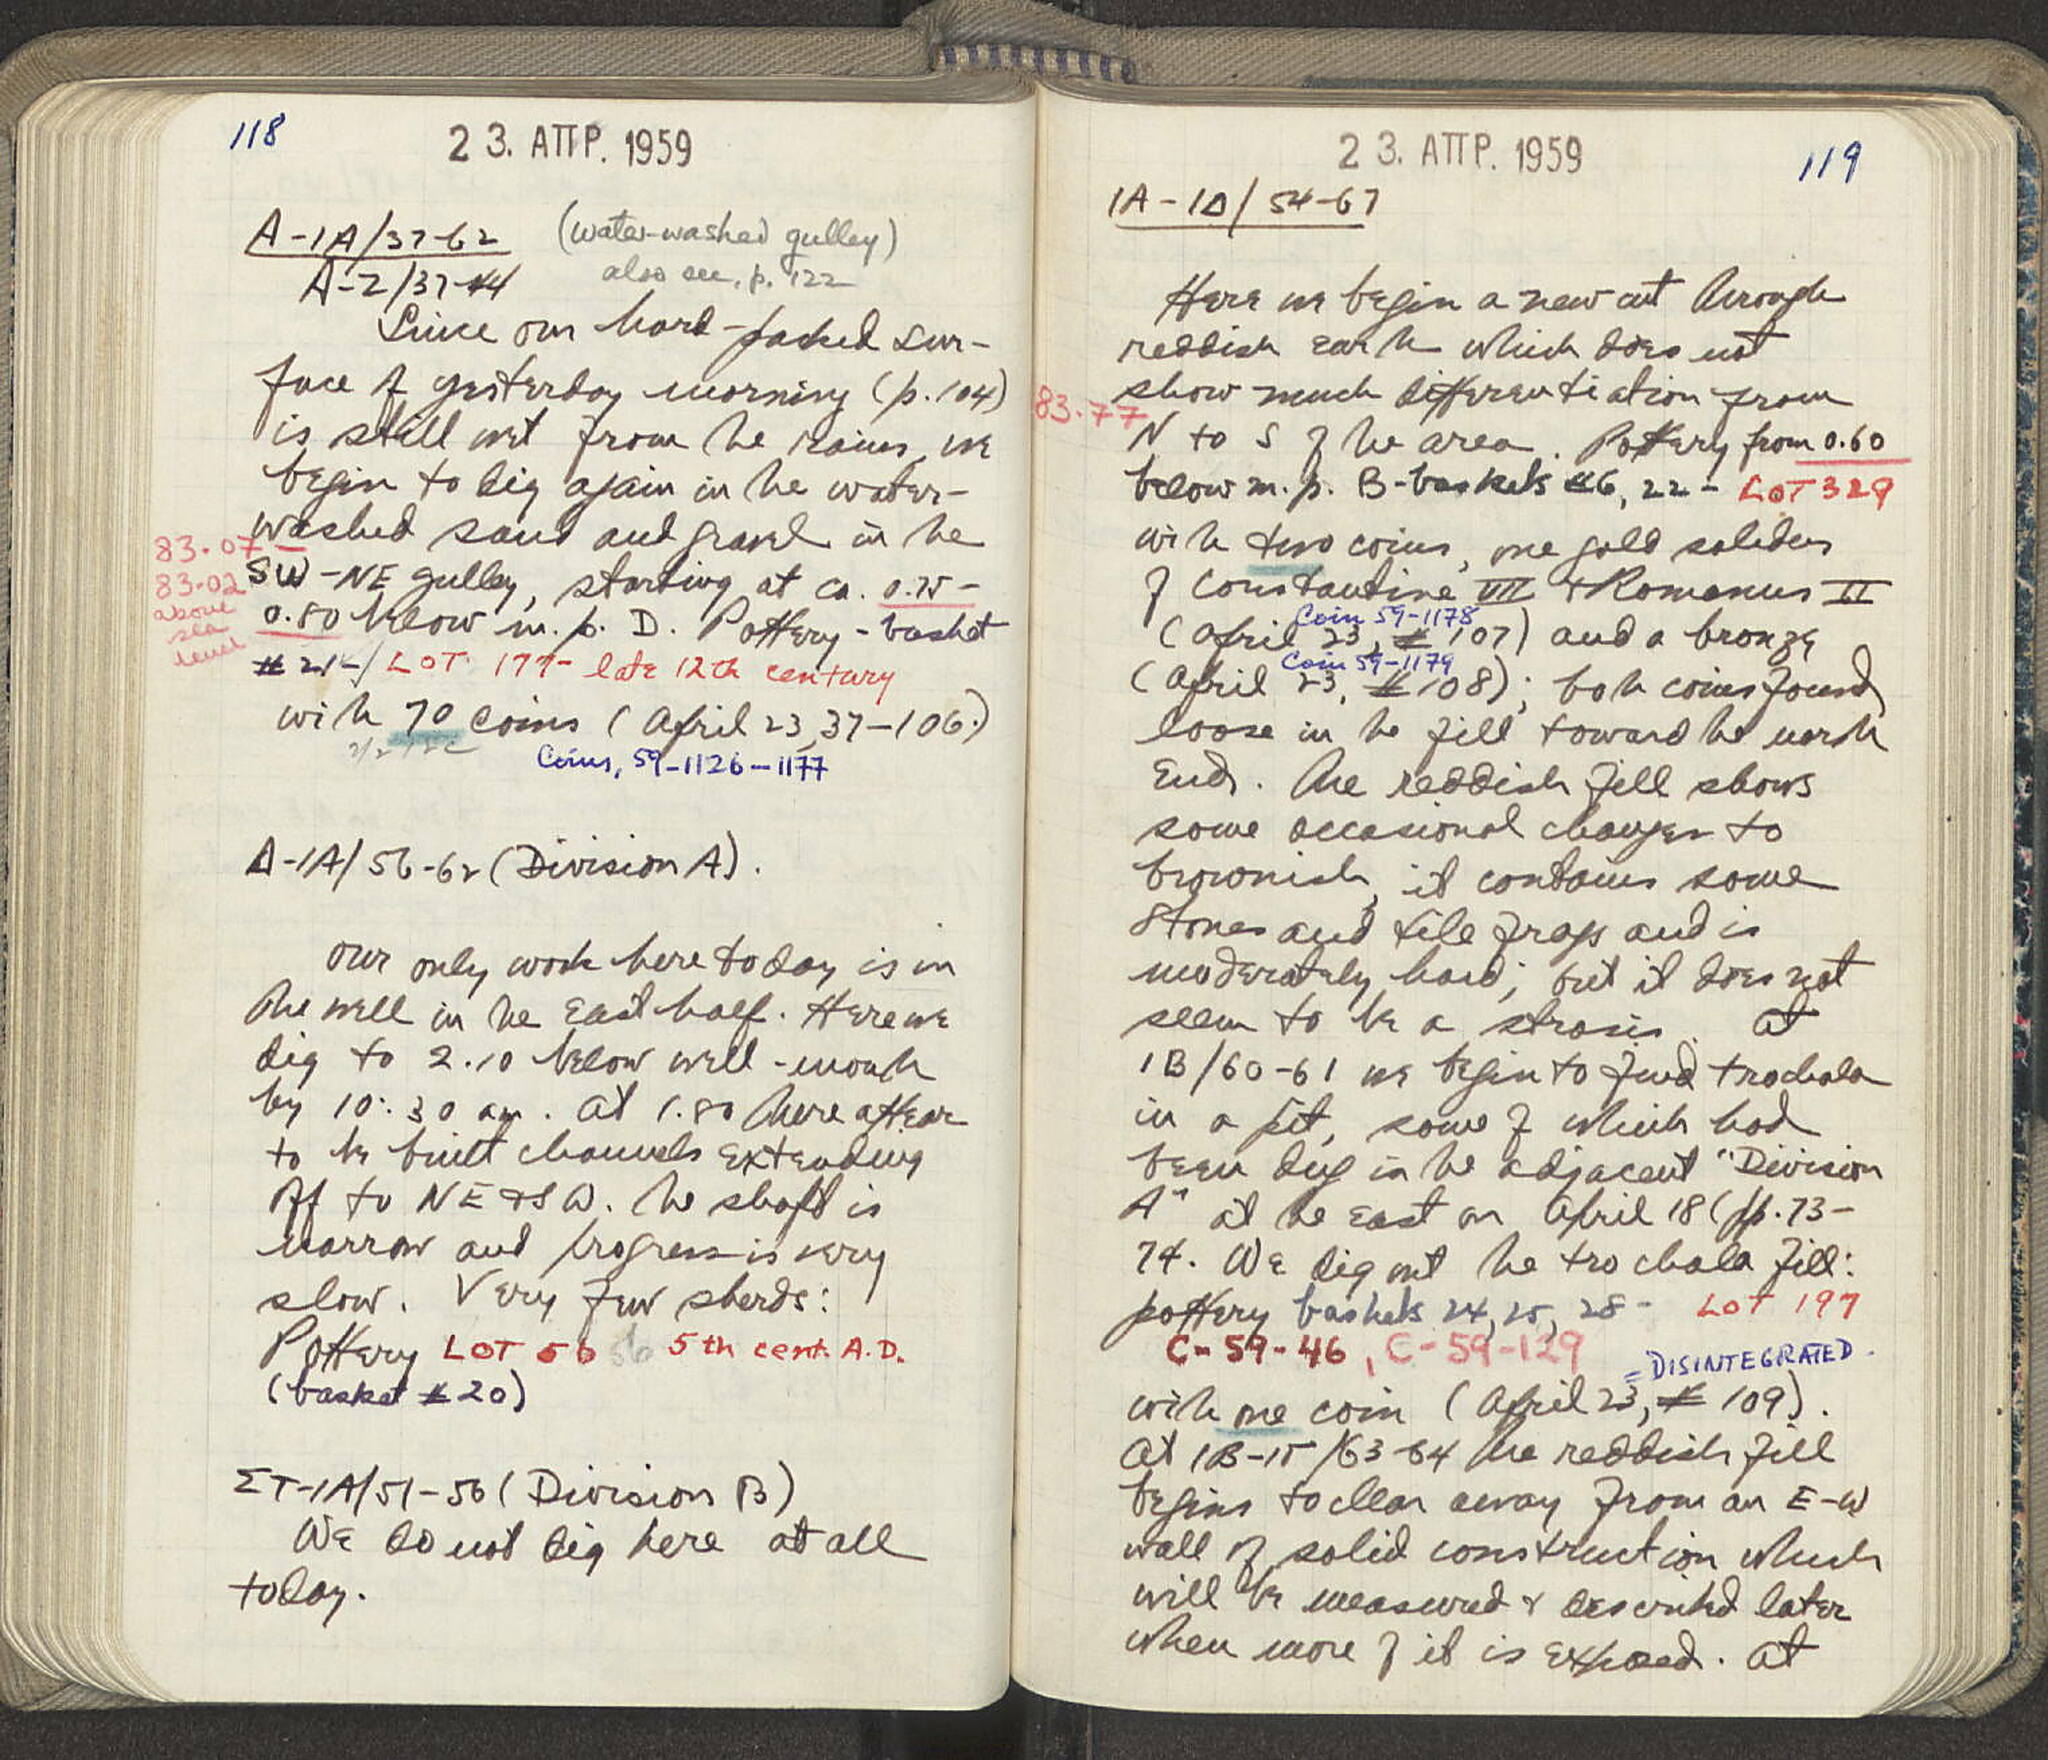 118
23. ΑΠΡ. 1959
A-1A/37-62 (water-washed gulley)
A-2/37-44 also see, p. 122
Since our hard-packed sur-
face of yesterday morning (p. 104)
is still wet from the rains, we
begin to dig again in the water-
washed sand and gravel in the
83.07 –
83.02
above
sea
level
SW-NE gulley, starting at ca. 0.75-
0.80 below m.p. D. Pottery-basket
# 21-/ LOT 177- late 12th century
with 70 coins (April 23, 37-106)
Coins, 59-1126-1177
Δ-1A/56-62 (Division A).
Our only work here today is in
the well in the East half. Here we
dig to 2.10 below well-mouth
by 10:30 am. At 1.80 there appear
to be built channels extending
off to NE & SW. The shaft is
narrow and progress is very
slow. Very few sherds:
Pottery LOT 56 56 5th cent. A.D.
(basket # 20)
ΣΤ-1A/51-56 (Division B)
We do not dig here at all
today.
23. ΑΠΡ. 1959
119
1A-1Δ/54-67
Here we begin a new cut through
reddish earth which does not
show much differentiation from
83.77
N to S of the area. Pottery from 0.60
below m.p. B-baskets #6, 22- LOT 329
with two coins, one gold solidus
of Constantine VII & Romanus II
Coin 59-1178
(April 23, # 107) and a bronze
Coin 59-1179
(April 23, # 108); both coins found
loose in the fill toward the north
end. The reddish fill shows
some occasional changes to
brownish, it contains some
stones and tile frags and is
moderately hard; but it does not
seem to be a strosis. At
1B/60-61 we begin to find trochala
in a pit, some of which had
been dug in the adjacent "Division
A" at the east on April 18 (pp. 73-
74. We dig out the trochala fill:
pottery baskets 24, 25, 28- LOT 197
C-59-46, C-59-129
= DISINTEGRATED.
with one coin (April 23, # 109).
At 1B-1Γ/63-64 the reddish fill
begins to clear away from an E-W
wall of solid construction which
will be measured & described later
when more of it is exposed. At